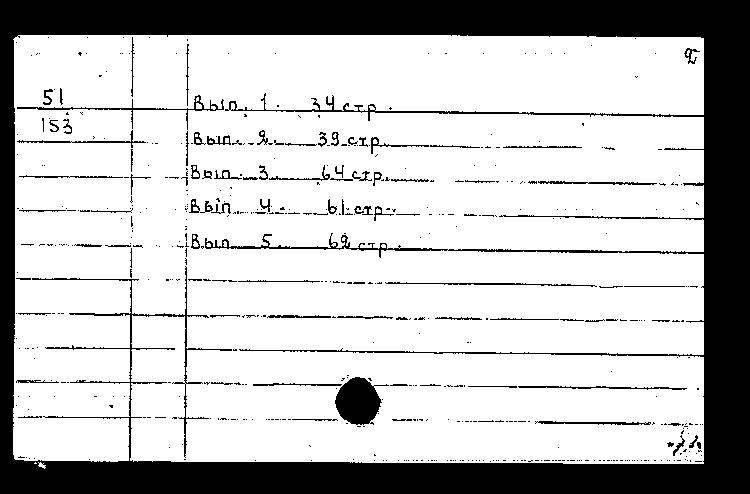 2
51
153
Вып. 1. 34 стр.
Вып. 2. 39 стр.
Вып. 3. 64 стр.
Вып. 4. 61 стр.
Вып. 5. 62 стр.